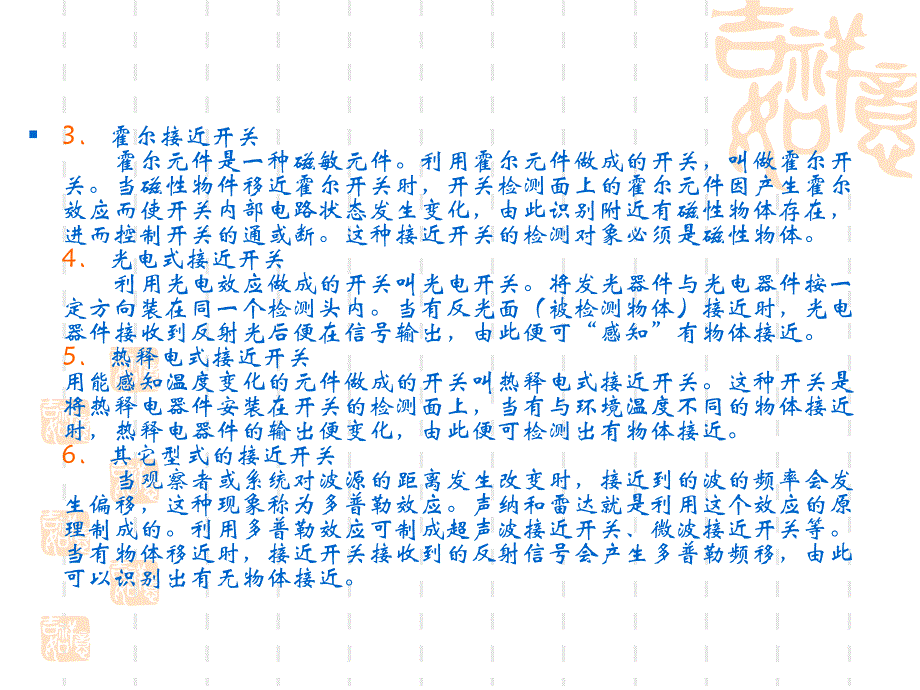 吉祥如意
3、 霍尔接近开关
霍尔元件是一种磁敏元件。利用霍尔元件做成的开关，叫做霍尔开
关。当磁性物件移近霍尔开关时，开关检测面上的霍尔元件因产生霍尔
效应而使开关内部电路状态发生变化，由此识别附近有磁性物体存在，
进而控制开关的通或断。这种接近开关的检测对象必须是磁性物体。
4、 光电式接近开关
利用光电效应做成的开关叫光电开关。将发光器件与光电器件按一
定方向装在同一个检测头内。当有反光面（被检测物体）接近时，光电
器件接收到反射光后便在信号输出，由此便可“感知”有物体接近。
5、 热释电式接近开关
用能感知温度变化的元件做成的开关叫热释电式接近开关。这种开关是
将热释电器件安装在开关的检测面上，当有与环境温度不同的物体接近
时，热释电器件的输出便变化，由此便可检测出有物体接近。
6、 其它型式的接近开关
当观察者或系统对波源的距离发生改变时，接近到的波的频率会发
生偏移，这种现象称为多普勒效应。声纳和雷达就是利用这个效应的原
理制成的。利用多普勒效应可制成超声波接近开关、微波接近开关等。
当有物体移近时，接近开关接收到的反射信号会产生多普勒频移，由此
可以识别出有无物体接近。
吉祥如意